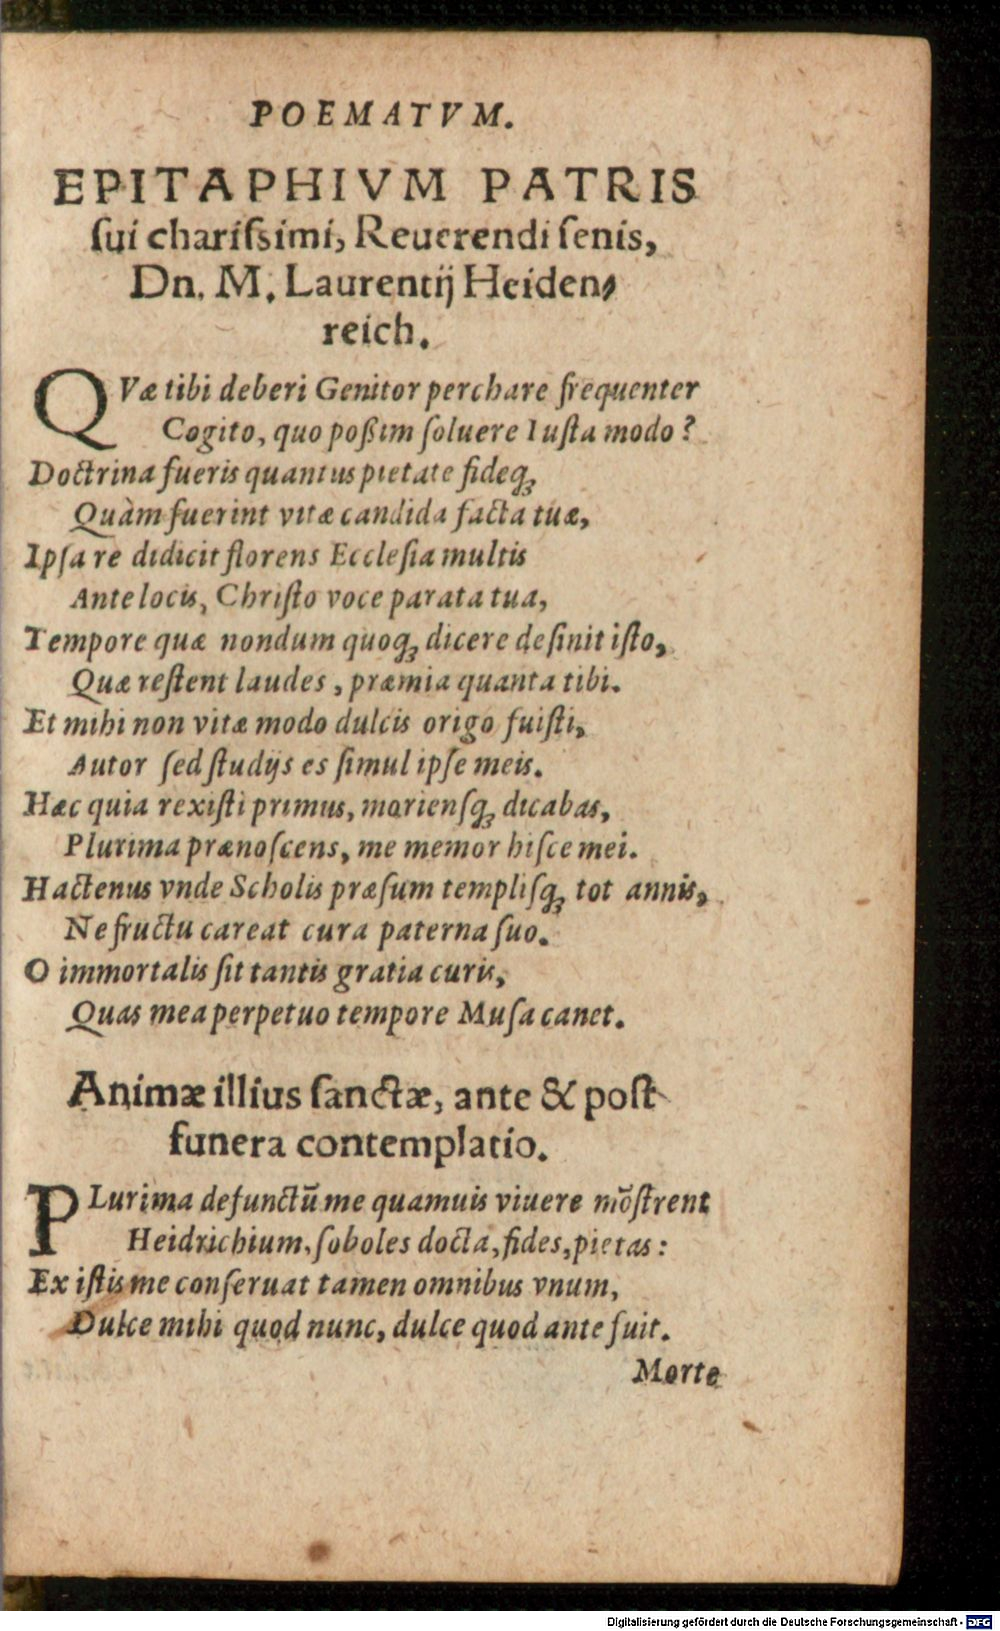 POEMATVM.
EPITAPHIVM PATRIS
ſui chariſsimi, Reuerendi ſenis,
Dn. M. Laurentij Heiden⸗
reich.
QVæ tibi deberi Genitor perchare frequenter
Cogito, quo poßim ſoluere Iuſta modo?
Doctrina fueris quantus pietate fideq́;
Quàm fuerint vitæ candida facta tuæ,
Ipſa re didicit florens Eccleſia multis
Ante locis, Chriſto voce parata tua,
Tempore quæ nondum quoq; dicere deſinit iſto,
Quæ reſtent laudes, præmia quanta tibi.
Et mihi non vitæ modo dulcis origo fuiſti,
Autor ſed ſtudijs es ſimul ipſe meis.
Hæc quia rexiſti primus, morienſq; dicabas,
Plurima prænoſcens, me memor hiſce mei.
Hactenus vnde Scholis præſum templiſq; tot annis,
Ne fructu careat cura paterna ſuo.
O immortalis ſit tantis gratia curis,
Quas mea perpetuo tempore Muſa canet.
Animæ illius ſanctæ, ante & poſt
funera contemplatio.
PLurima defunctū me quamuis viuere mōſtrent
Heidrichium, ſoboles docta, fides, pietas:
Ex iſtis me conſeruat tamen omnibus vnum,
Dulce mihi quod nunc, dulce quod ante fuit.
Morte
Digitalisierung gefördert durch die Deutsche Forschungsgemeinschaft - DFG